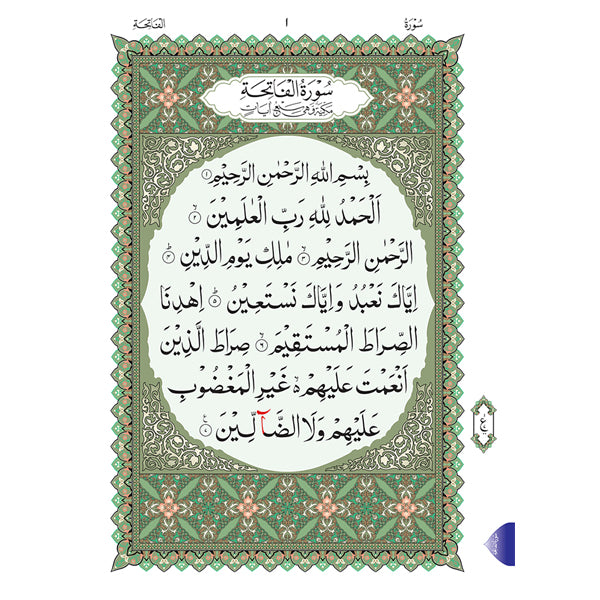 سُوْرَةُ
١
الْفَاتِحَةِ
سُوْرَةُ الْفَاتِحَةِ
مَكِّيَّةٌ وَّهِيَ سَبْعُ اٰيَاتٍ
بِسْمِ اللهِ الرَّحْمٰنِ الرَّحِيْمِ ۝١
اَلْحَمْدُ لِلّٰهِ رَبِّ الْعٰلَمِيْنَ ۝٢
الرَّحْمٰنِ الرَّحِيْمِ ۝٣ مٰلِكِ يَوْمِ الدِّيْنِ ۝٤
اِيَّاكَ نَعْبُدُ وَاِيَّاكَ نَسْتَعِيْنُ ۝٥ اِهْدِنَا
الصِّرَاطَ الْمُسْتَقِيْمَ ۝٦ صِرَاطَ الَّذِيْنَ
اَنْعَمْتَ عَلَيْهِمْ ە غَيْرِ الْمَغْضُوْبِ
عَلَيْهِمْ وَلَا الضَّآلِّيْنَ ۝٧
ع